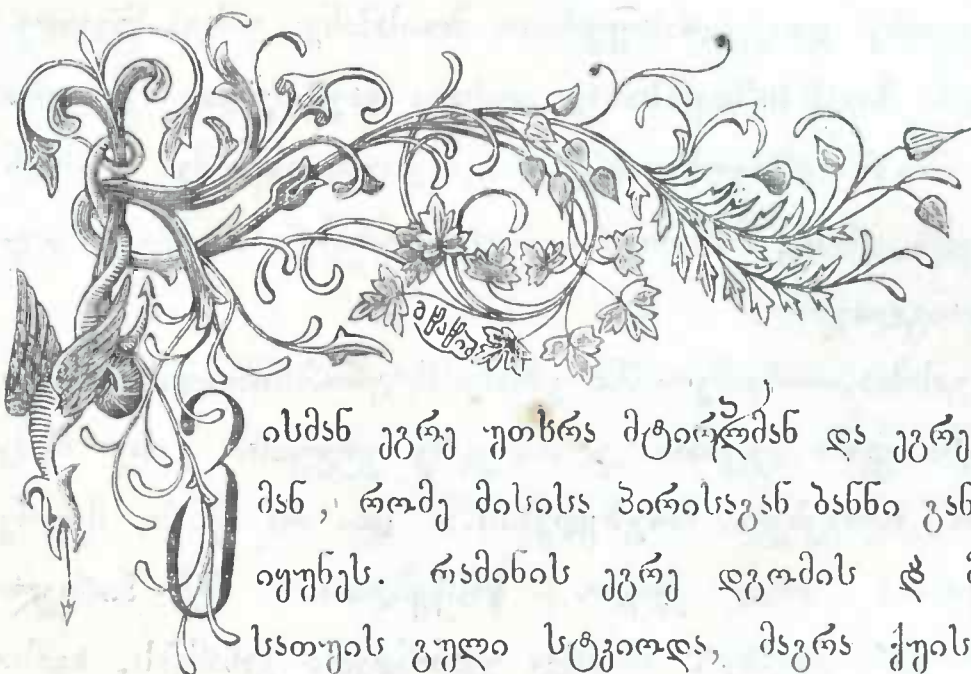 ვისმან ეგრე უთხრა მტირალმან და ეგრე
მან, რომე მისისა პირისაგან ბანნი გან
იყუნეს. რამინის ეგრე დგომის &
სათუის გული სტკიოდა, მაგრა ქუის